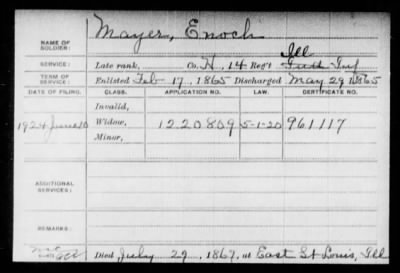 NAME OF SOLDIER: Mayer, Enoch
SERVICE: Late rank, Co. H, 14 Reg't Ill Inf
TERM OF SERVICE: Enlisted Feb 17, 1865 Discharged May 29, 1865
DATE OF FILING. CLASS. APPLICATION NO. LAW. CERTIFICATE NO.
Invalid,
1924 June 10 Widow, 1220809 5-1-20 961117
Minor,
ADDITIONAL SERVICES:
REMARKS:
Died July 29, 1867, at East St Louis, Ill